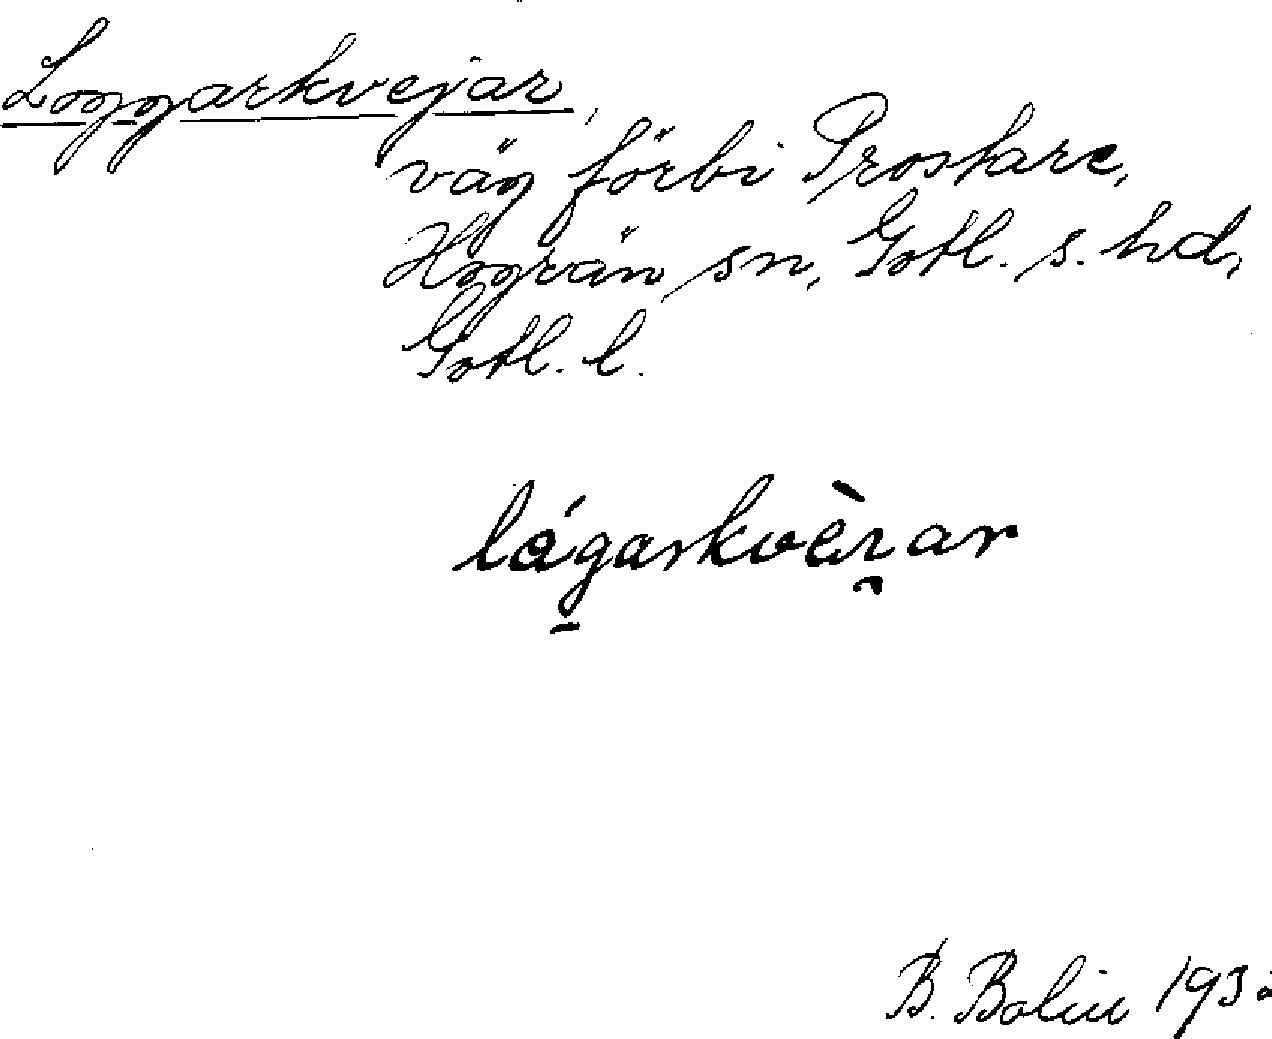 Loggarkvejar,
väg förbi Prostarc,
Hogrän sn, Gotl. s. hd,
Gotl. l.
lágarkvèɪ̯ar
B. Bolin